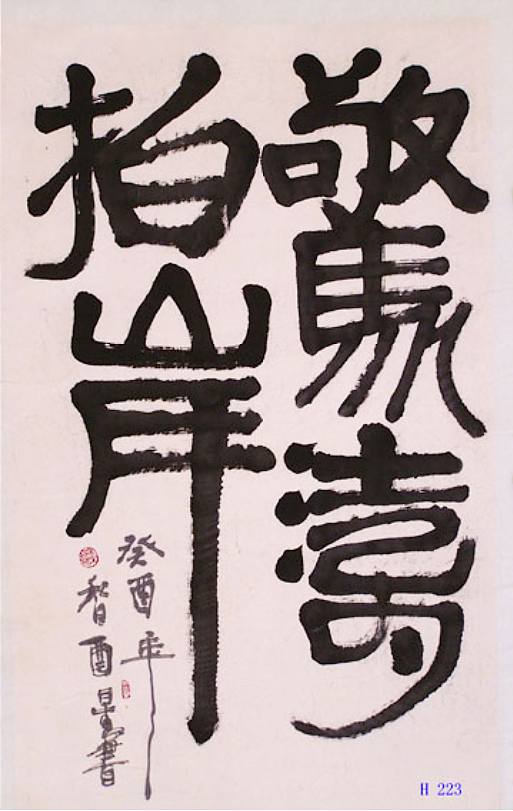 驚濤
拍岸
癸酉年
書
H 223